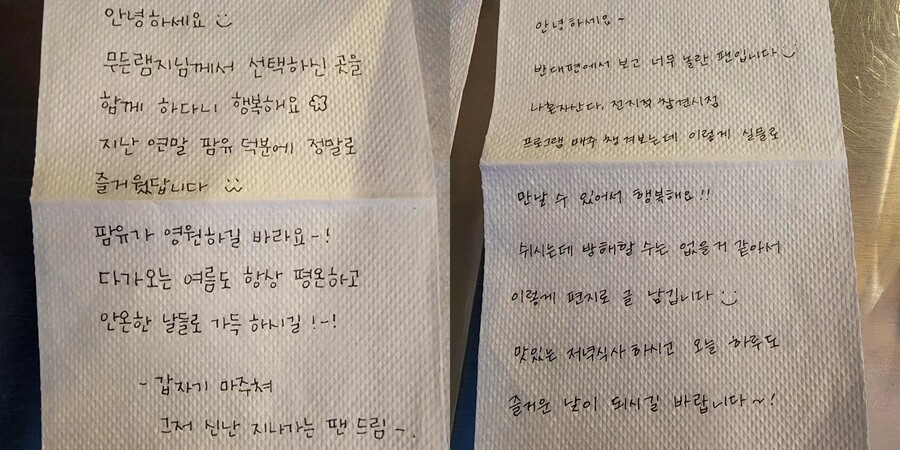 안녕하세요 :)
무든램지님께서 선택하신 곳을
함께 하다니 행복해요
지난 연말 팜유 덕분에 정말로
즐거웠답니다 :)
팜유가 영원하길 바라요~!
다가오는 여름도 항상 평온하고
안온한 날들로 가득 하시길!~!
- 갑자기 마주쳐
그저 신난 지나가는 팬 드림~.
안녕하세요~
반대편에서 보고 너무 놀란 팬입니다 :)
나혼자산다, 전지적 참견시점
프로그램 매주 챙겨보는데 이렇게 실물로
만날 수 있어서 행복해요!!
쉬시는데 방해할 수는 없을거 같아서
이렇게 편지로 글 남깁니다 :)
맛있는 저녁식사 하시고 오늘 하루도
즐거운 날이 되시길 바랍니다~!